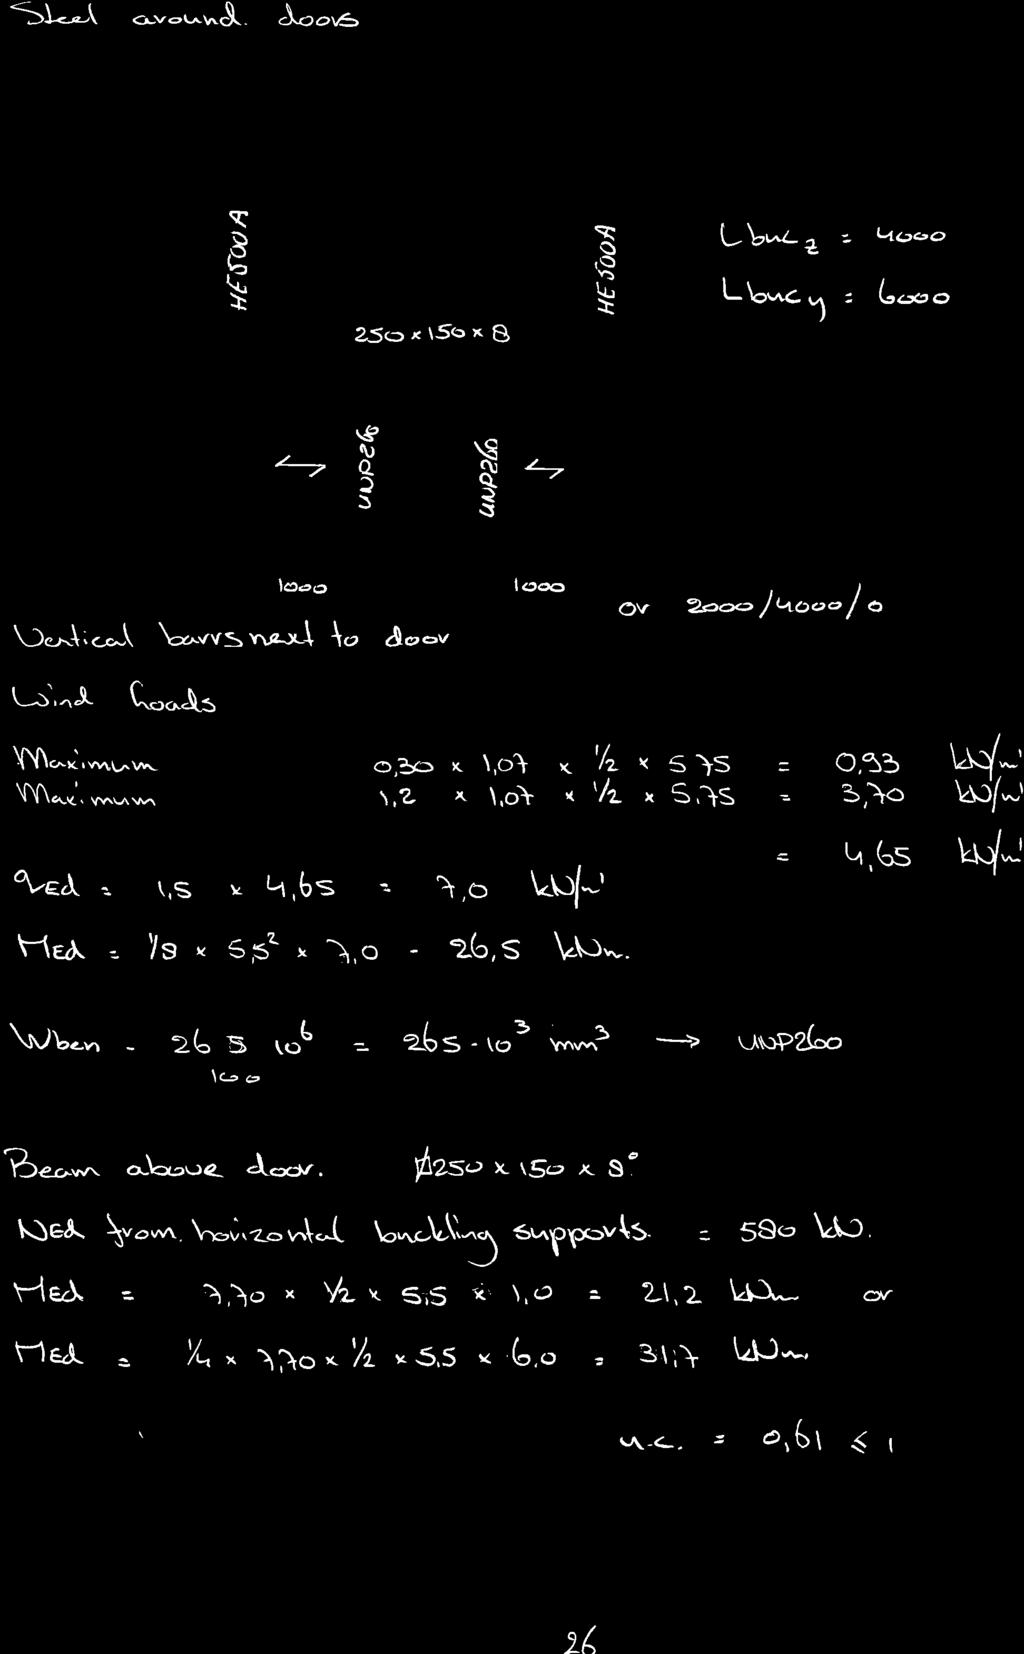 Steel around. doors
HE500A
HE500A
Lbucz = 4000
Lbucy = 6000
250 x 150 x 8
UNP260
UNP260
1000
1000
or 2000/4000/0
Vertical barrs next to door
Wind hoads
Maximum 0,30 x 1,07 x 1/2 x 5.75 = 0,93 kN/m'
Maximum 1,2 x 1,07 x 1/2 x 5.75 = 3,70 kN/m'
= 4,65 kN/m'
qEd = 1,5 x 4,65 = 7,0 kN/m'
MEd = 1/8 x 5,5² x 7,0 = 26,5 kNm.
Wben = 26 5 10⁶ = 265·10³ mm³ → UNP260
100
Beam above door. 250 x 150 x 8:
NEd from. horizontal buckling supports. = 580 kN.
MEd = 7,70 x 1/2 x 5,5 x 1,0 = 21,2 kNm or
MEd = 1/4 x 7,70 x 1/2 x 5.5 x 6.0 = 31,7 kNm.
u.c. = 0,61 ≤ 1
26